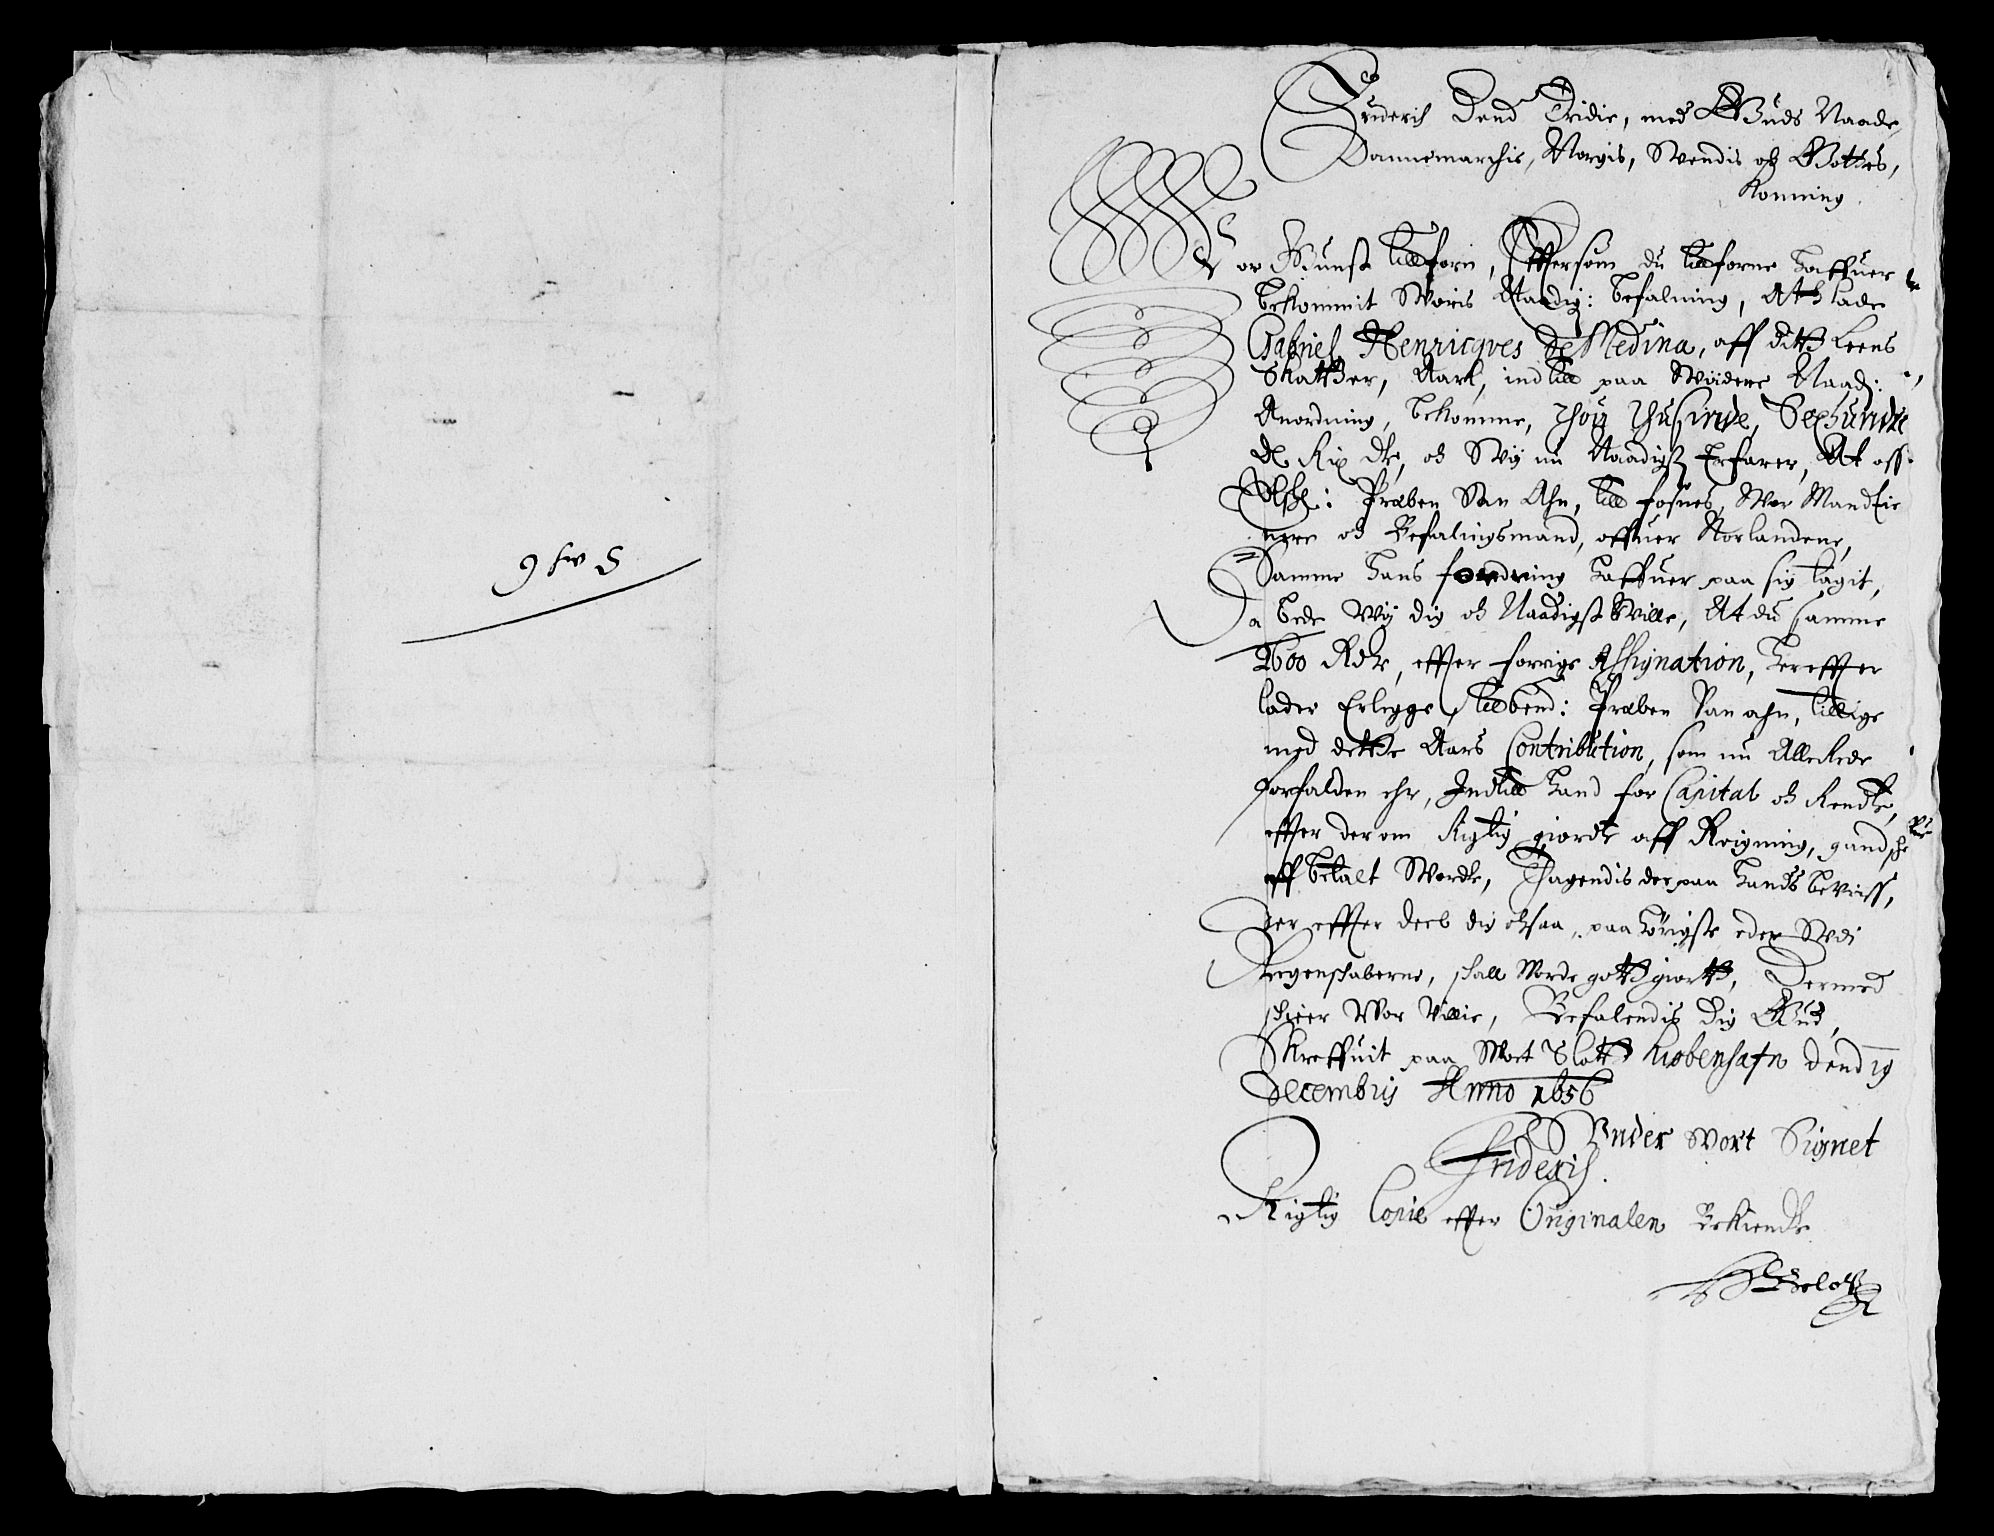 Friderich Dend Tridie, med Guds Naade
Dannemarchis, Norgis, Wendis och Gottes,
Konning
Vor Gunst tilforn, Effersom du tilforne haffuer
bekommit Woris Naadig: befalning, Ath lade
Gabriel Henricqves De Medina, aff ditt Leens
Skatter, Aarl, ind till paa Widere Naad:
Anordning, bekomme, Thou Thusinde, Sexhundre
de Rix dr, och Wij nu Naadigst Erfarer, At oss
Elsk: Præben Von Ahn, till Fosnes, Wor Mand tie
nere och Befalingsmand, offuer Norlandene,
Samme hans fordring haffuer paa sig tagit,
Da bede Wij dig och Naadigst Wille, At du samme
2600 Rdr, effter forrige Assignation, hereffter
lader Erlegge, till bend: Præben Von ahn, tillige
med dette Aars Contribution, som nu Allerede
forfalden ehr, Indtill hand for Capital och Rendte,
effter derom Rigtig giorde aff Reigning, gandsche
aff betalt Worde, Thagendis der paa hands beviiss,
Der effter deel dig ochsaa, paa tørigste eder Wdi
Regenschaberne, schall Worde gott giortt, Dermed
scheer Wor Villie, Befalendis Dig Gud,
Skreffuit paa Wort Slott Kiøbenhafn Dend 19
Decembris Anno 1656
Under Wort Signet
Friderich.
Rigtig Copie effter Originalen Bekiender